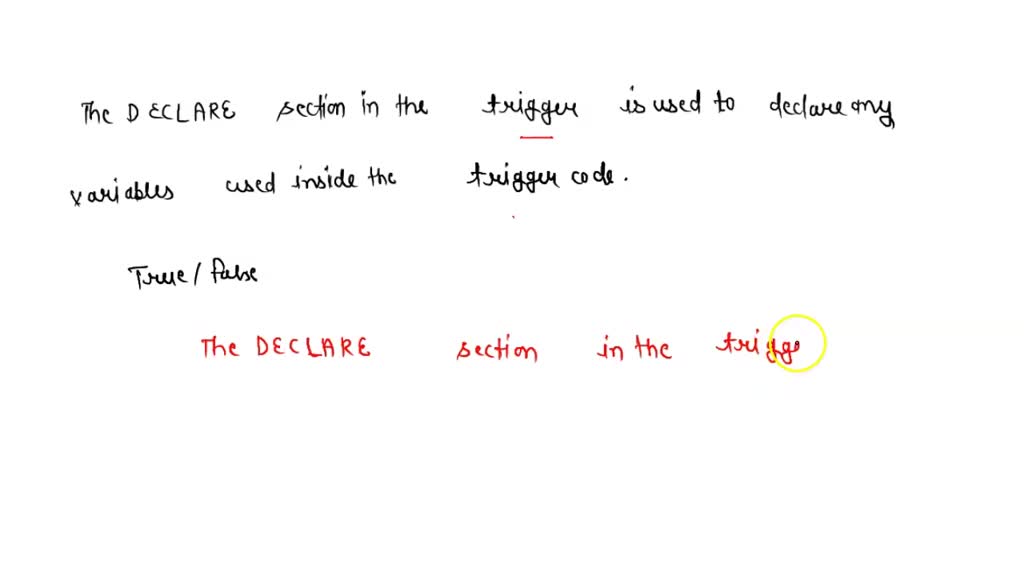 The DECLARE section in the trigger is used to declare any
variables used inside the trigger code.
True / False
The DECLARE section in the trigge